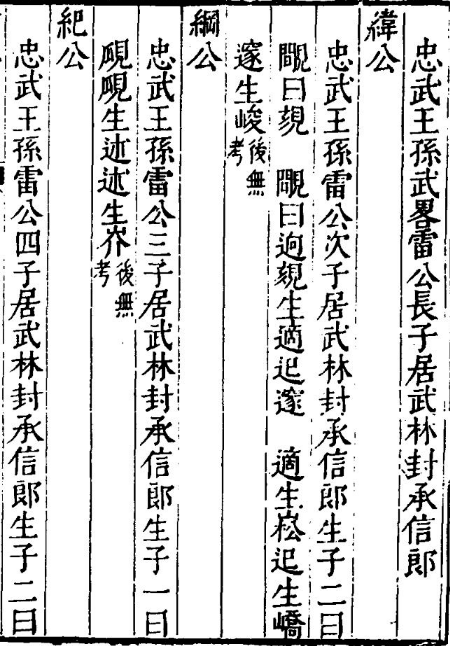 忠武王孫武畧雷公長子居武林封承信郎
緯公
忠武王孫雷公次子居武林封承信郎生子二曰
覶曰覣　覶曰逈覣生適迟邃　適生崧迟生嶠
邃生峻後無考
綱公
忠武王孫雷公三子居武林封承信郎生子一曰
覞覞生述述生岕後無考
紀公
忠武王孫雷公四子居武林封承信郎生子二曰